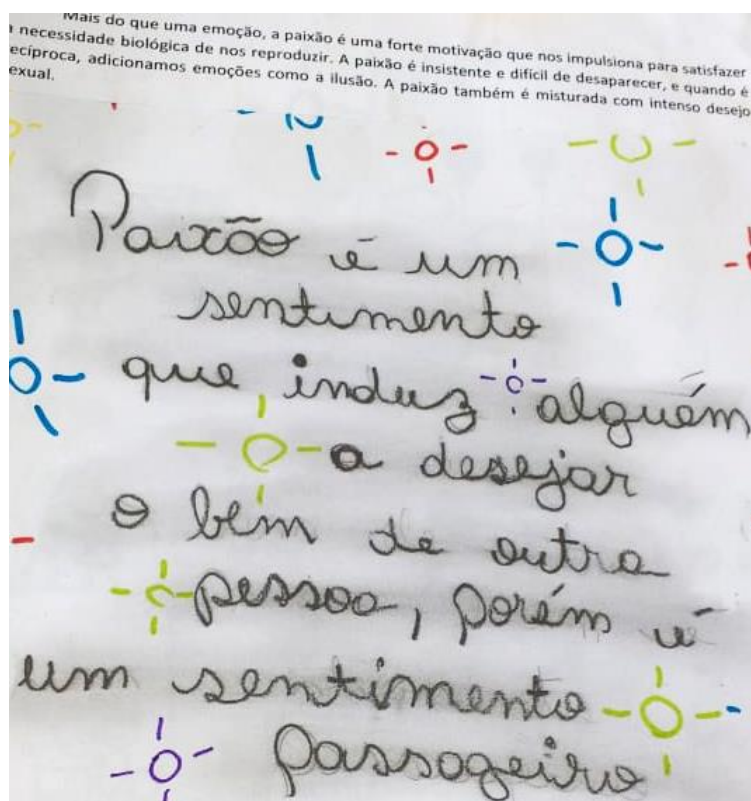 Mais do que uma emoção, a paixão é uma forte motivação que nos impulsiona para satisfazer
necessidade biológica de nos reproduzir. A paixão é insistente e difícil de desaparecer, e quando é
ecíproca, adicionamos emoções como a ilusão. A paixão também é misturada com intenso desejo
exual.
Paixão é um
sentimento
que induz alguém
a desejar
o bem de outra
pessoa, porém é
um sentimento
passageiro